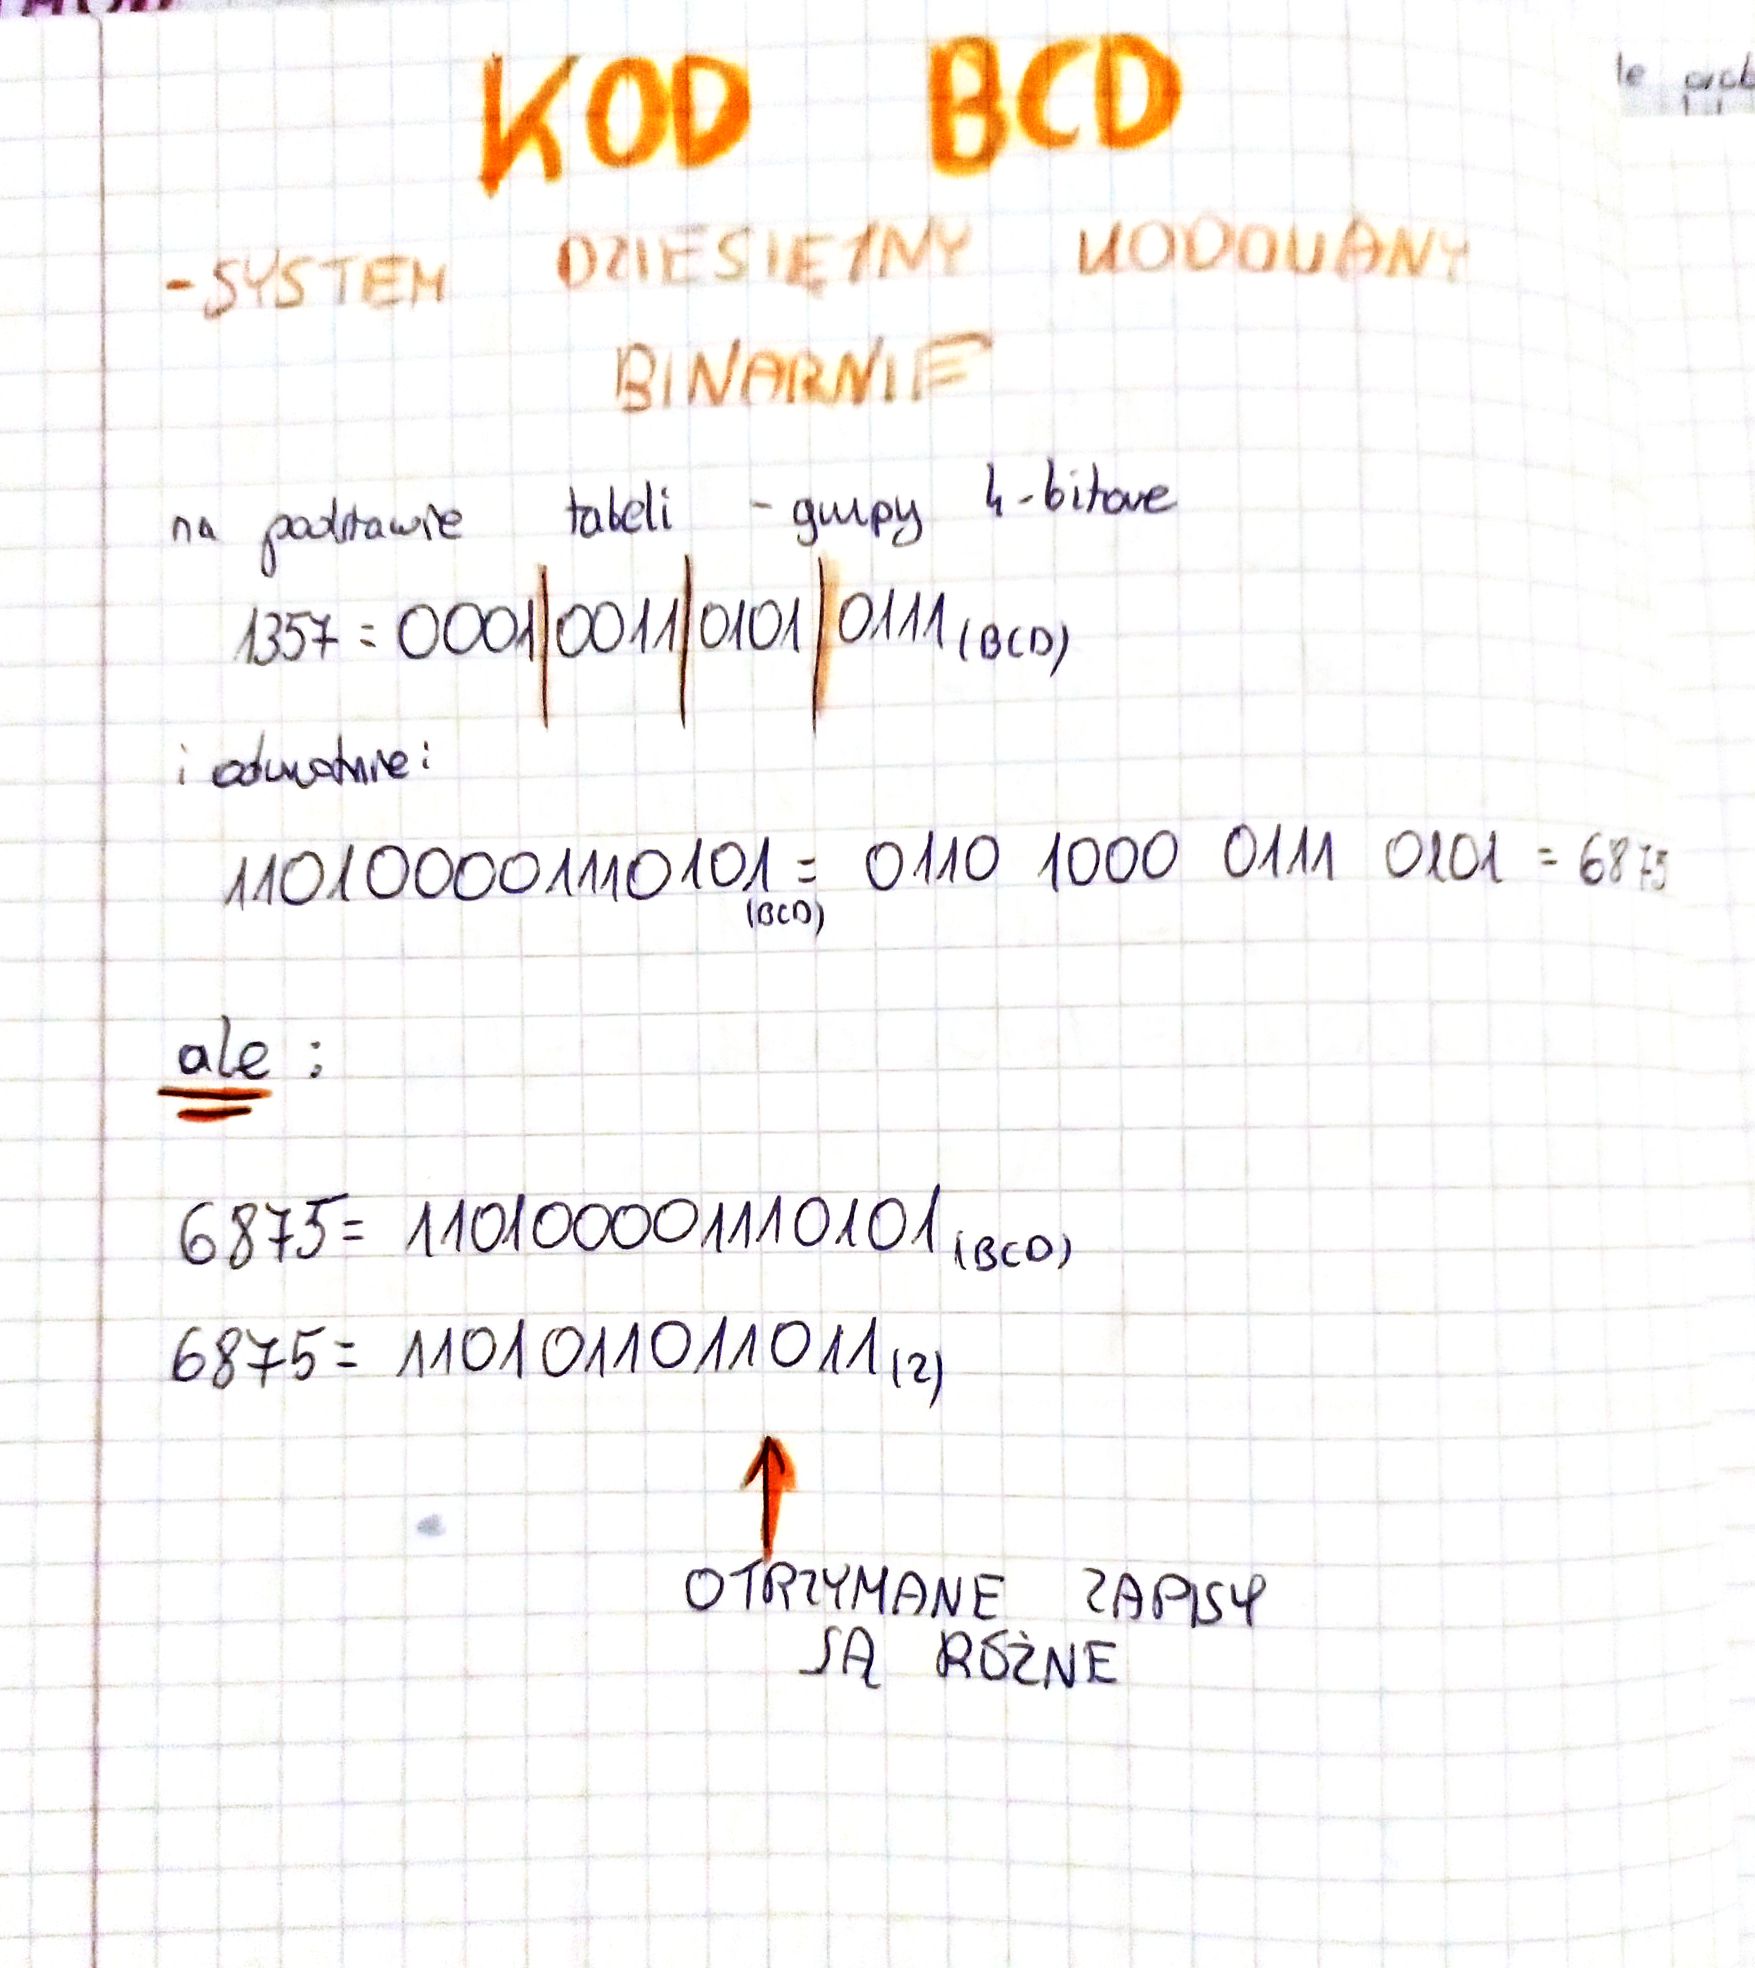 KOD BCD
-SYSTEM DZIESIĘTNY KODOWANY
BINARNIE
na podstawie tabeli - grupy 4-bitowe
1357 = 0001|0011|0101|0111 (BCD)
i odwrotnie:
110100001110101 (BCD) = 0110 1000 0111 0101 = 6875
ale :
6875 = 110100001110101 (BCD)
6875 = 1101011011011 (2)
OTRZYMANE ZAPISY
SĄ RÓŻNE